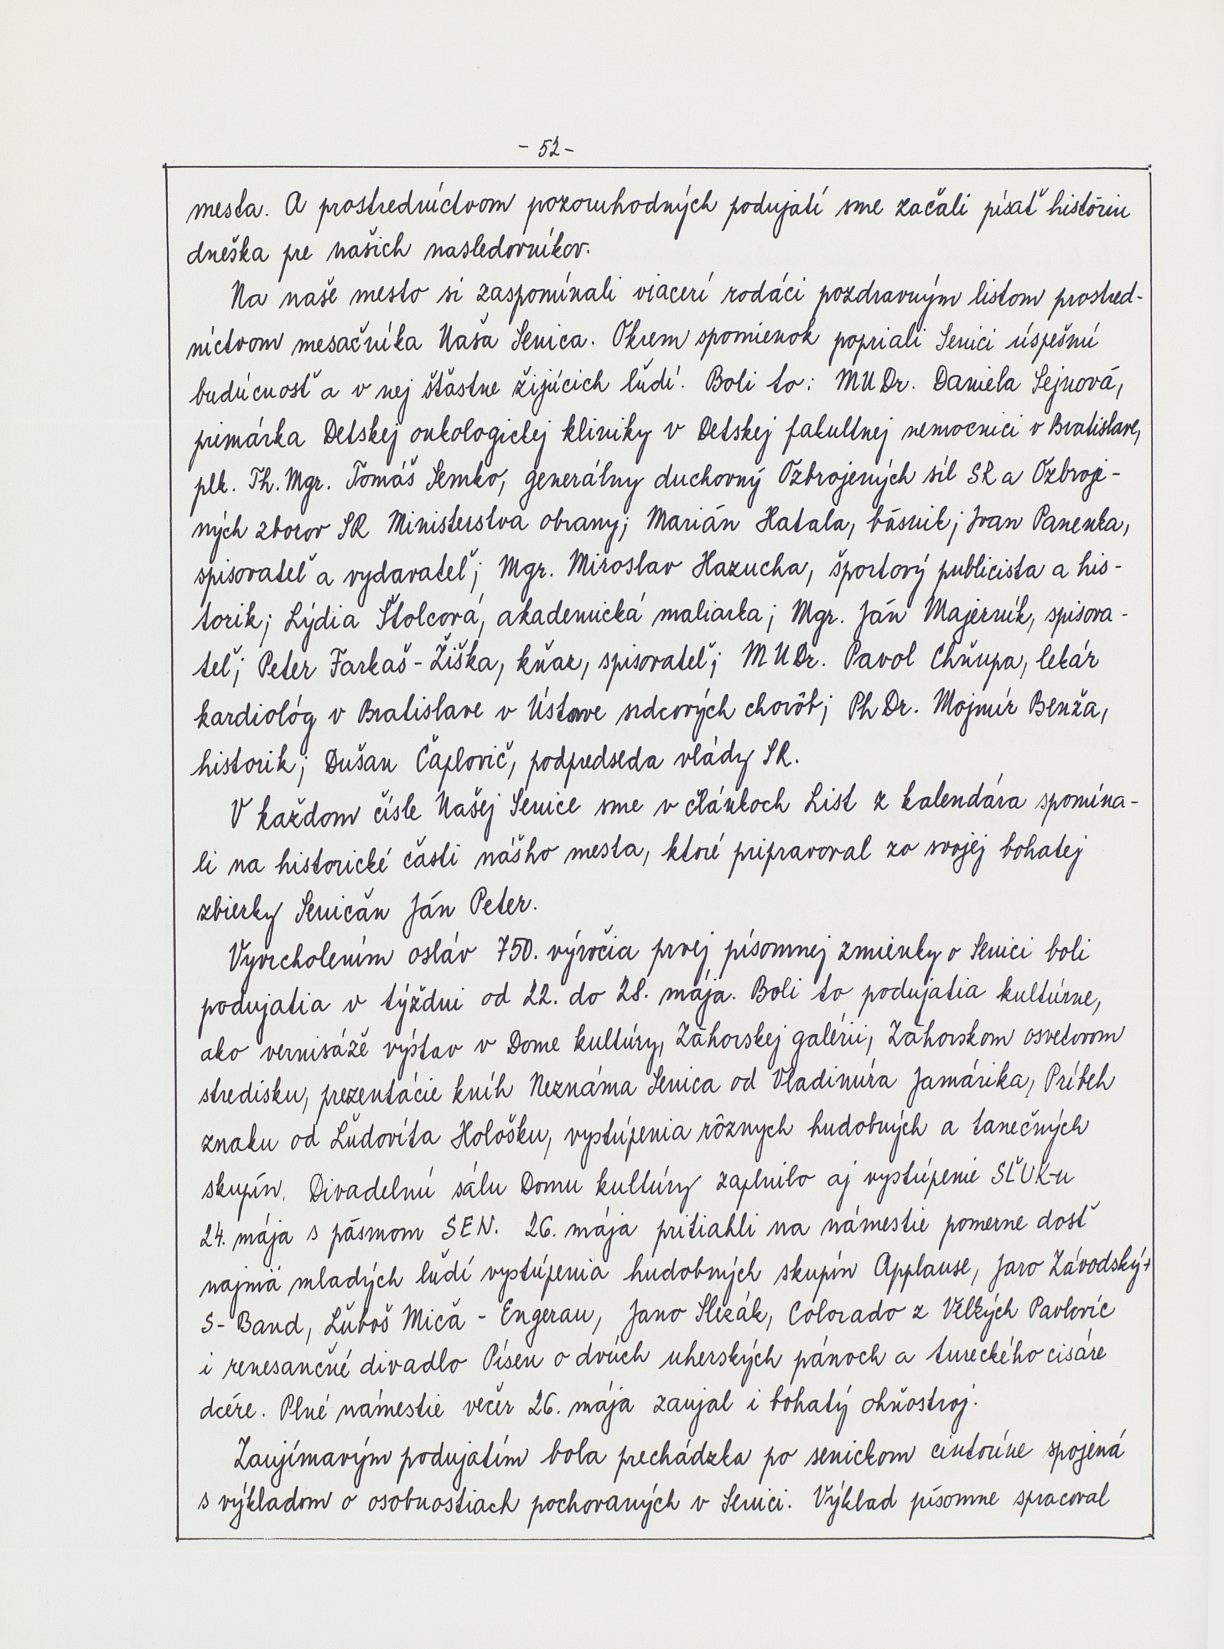 - 52 -
mesta. A prostredníctvom pozoruhodných podujatí sme začali písať históriu
dneška pre našich nasledovníkov.
Na naše mesto si zaspomínali viacerí rodáci pozdravným listom prostred-
níctvom mesačníka Naša Senica. Okrem spomienok popriali Senici úspešnú
budúcnosť a v nej šťastne žijúcich ľudí. Boli to: MUDr. Daniela Sejnová,
primárka Detskej onkologickej kliniky v Detskej fakultnej nemocnici v Bratislave,
plk. Th. Mgr. Tomáš Semko, generálny duchovný Ozbrojených síl SR a Ozbroje-
ných zborov SR Ministerstva obrany; Marián Hatala, básnik; Ivan Panenka,
spisovateľ a vydavateľ; Mgr. Miroslav Hazucha, športový publicista a his-
torik; Lýdia Štolcová, akademická maliarka; Mgr. Ján Majerník, spisova-
teľ; Peter Farkaš-Žiška, kňaz, spisovateľ; MUDr. Pavol Chňupa, lekár
kardiológ v Bratislave v Ústave srdcových chorôb; PhDr. Mojmír Benža,
historik; Dušan Čaplovič, podpredseda vlády SR.
V každom čísle Našej Senice sme v článkoch List z kalendára spomína-
li na historické časti nášho mesta, ktoré pripravoval zo svojej bohatej
zbierky Seničan Ján Peter.
Vyvrcholením osláv 750. výročia prvej písomnej zmienky o Senici boli
podujatia v týždni od 22. do 28. mája. Boli to podujatia kultúrne,
ako vernisáže výstav v Dome kultúry, Záhorskej galérii, Záhorskom osvetovom
stredisku, prezentácie kníh Neznáma Senica od Vladimíra Jamárika, Príbeh
znaku od Ľudovíta Hološku, vystúpenia rôznych hudobných a tanečných
skupín. Divadelnú sálu Domu kultúry zaplnilo aj vystúpenie SĽUK-u
24. mája s pásmom SEN. 26. mája pritiahli na námestie pomerne dosť
najmä mladých ľudí vystúpenia hudobných skupín Applause, Jaro Závodský+
S-Band, Ľuboš Miča - Engerau, Jano Slezák, Colorado z Velkých Pavlovíc
i renesančné divadlo Píseň o dvúch uherských pánoch a tureckého cisáre
dcére. Plné námestie večer 26. mája zaujal i bohatý ohňostroj.
Zaujímavým podujatím bola prechádzka po senickom cintoríne spojená
s výkladom o osobnostiach pochovaných v Senici. Výklad písomne spracoval